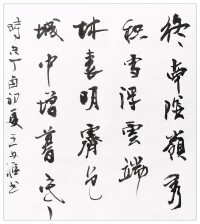 終南陰嶺秀
積雪浮雲端
林表明霽色
城中增暮寒
時在丁酉初夏王書